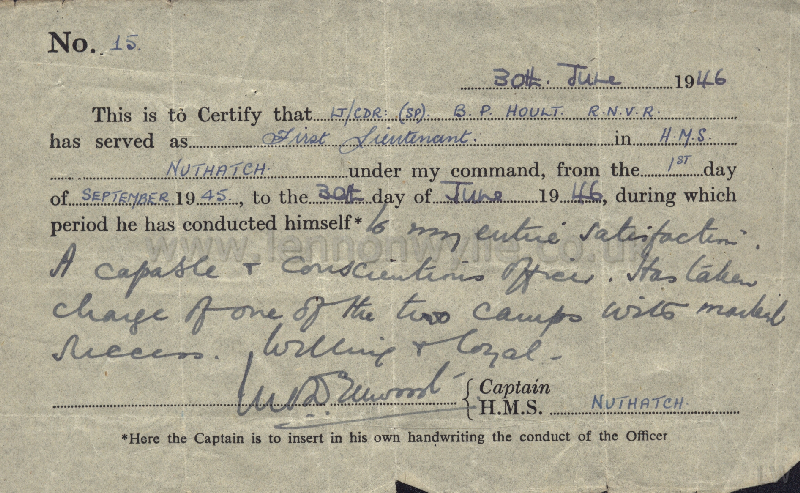 No. 15.
30th. June 1946
This is to Certify that LT/CDR. (SP). B. P. HOULT. R.N.V.R.
has served as First Lieutenant. in H.M.S.
NUTHATCH. under my command, from the 1ST day
of SEPTEMBER 1945, to the 30th day of June 1946, during which
period he has conducted himself* to my entire satisfaction.
www.lennonwylie.co.uk
A capable & conscientious officer. Has taken
charge of one of the two camps with marked
success. Willing & loyal.
Captain
H.M.S. NUTHATCH.
*Here the Captain is to insert in his own handwriting the conduct of the Officer